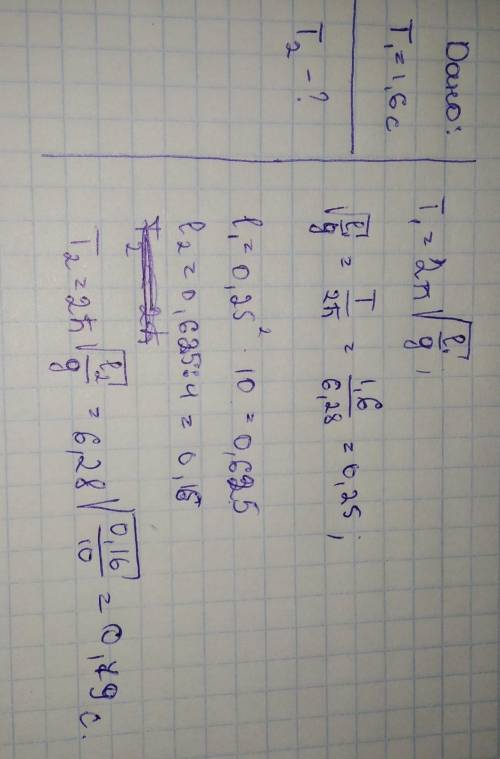 Дано:
T₁=1,6 с
T₂ - ?
T₁ = 2π√(l₁/g),
√(l₁/g) = T/2π = 1,6/6,28 = 0,25;
l₁ = 0,25² · 10 = 0,625
l₂ = 0,625:4 = 0,16
T₂ = 2π√(l₂/g) = 6,28√(0,16/10) = 0,79 с.